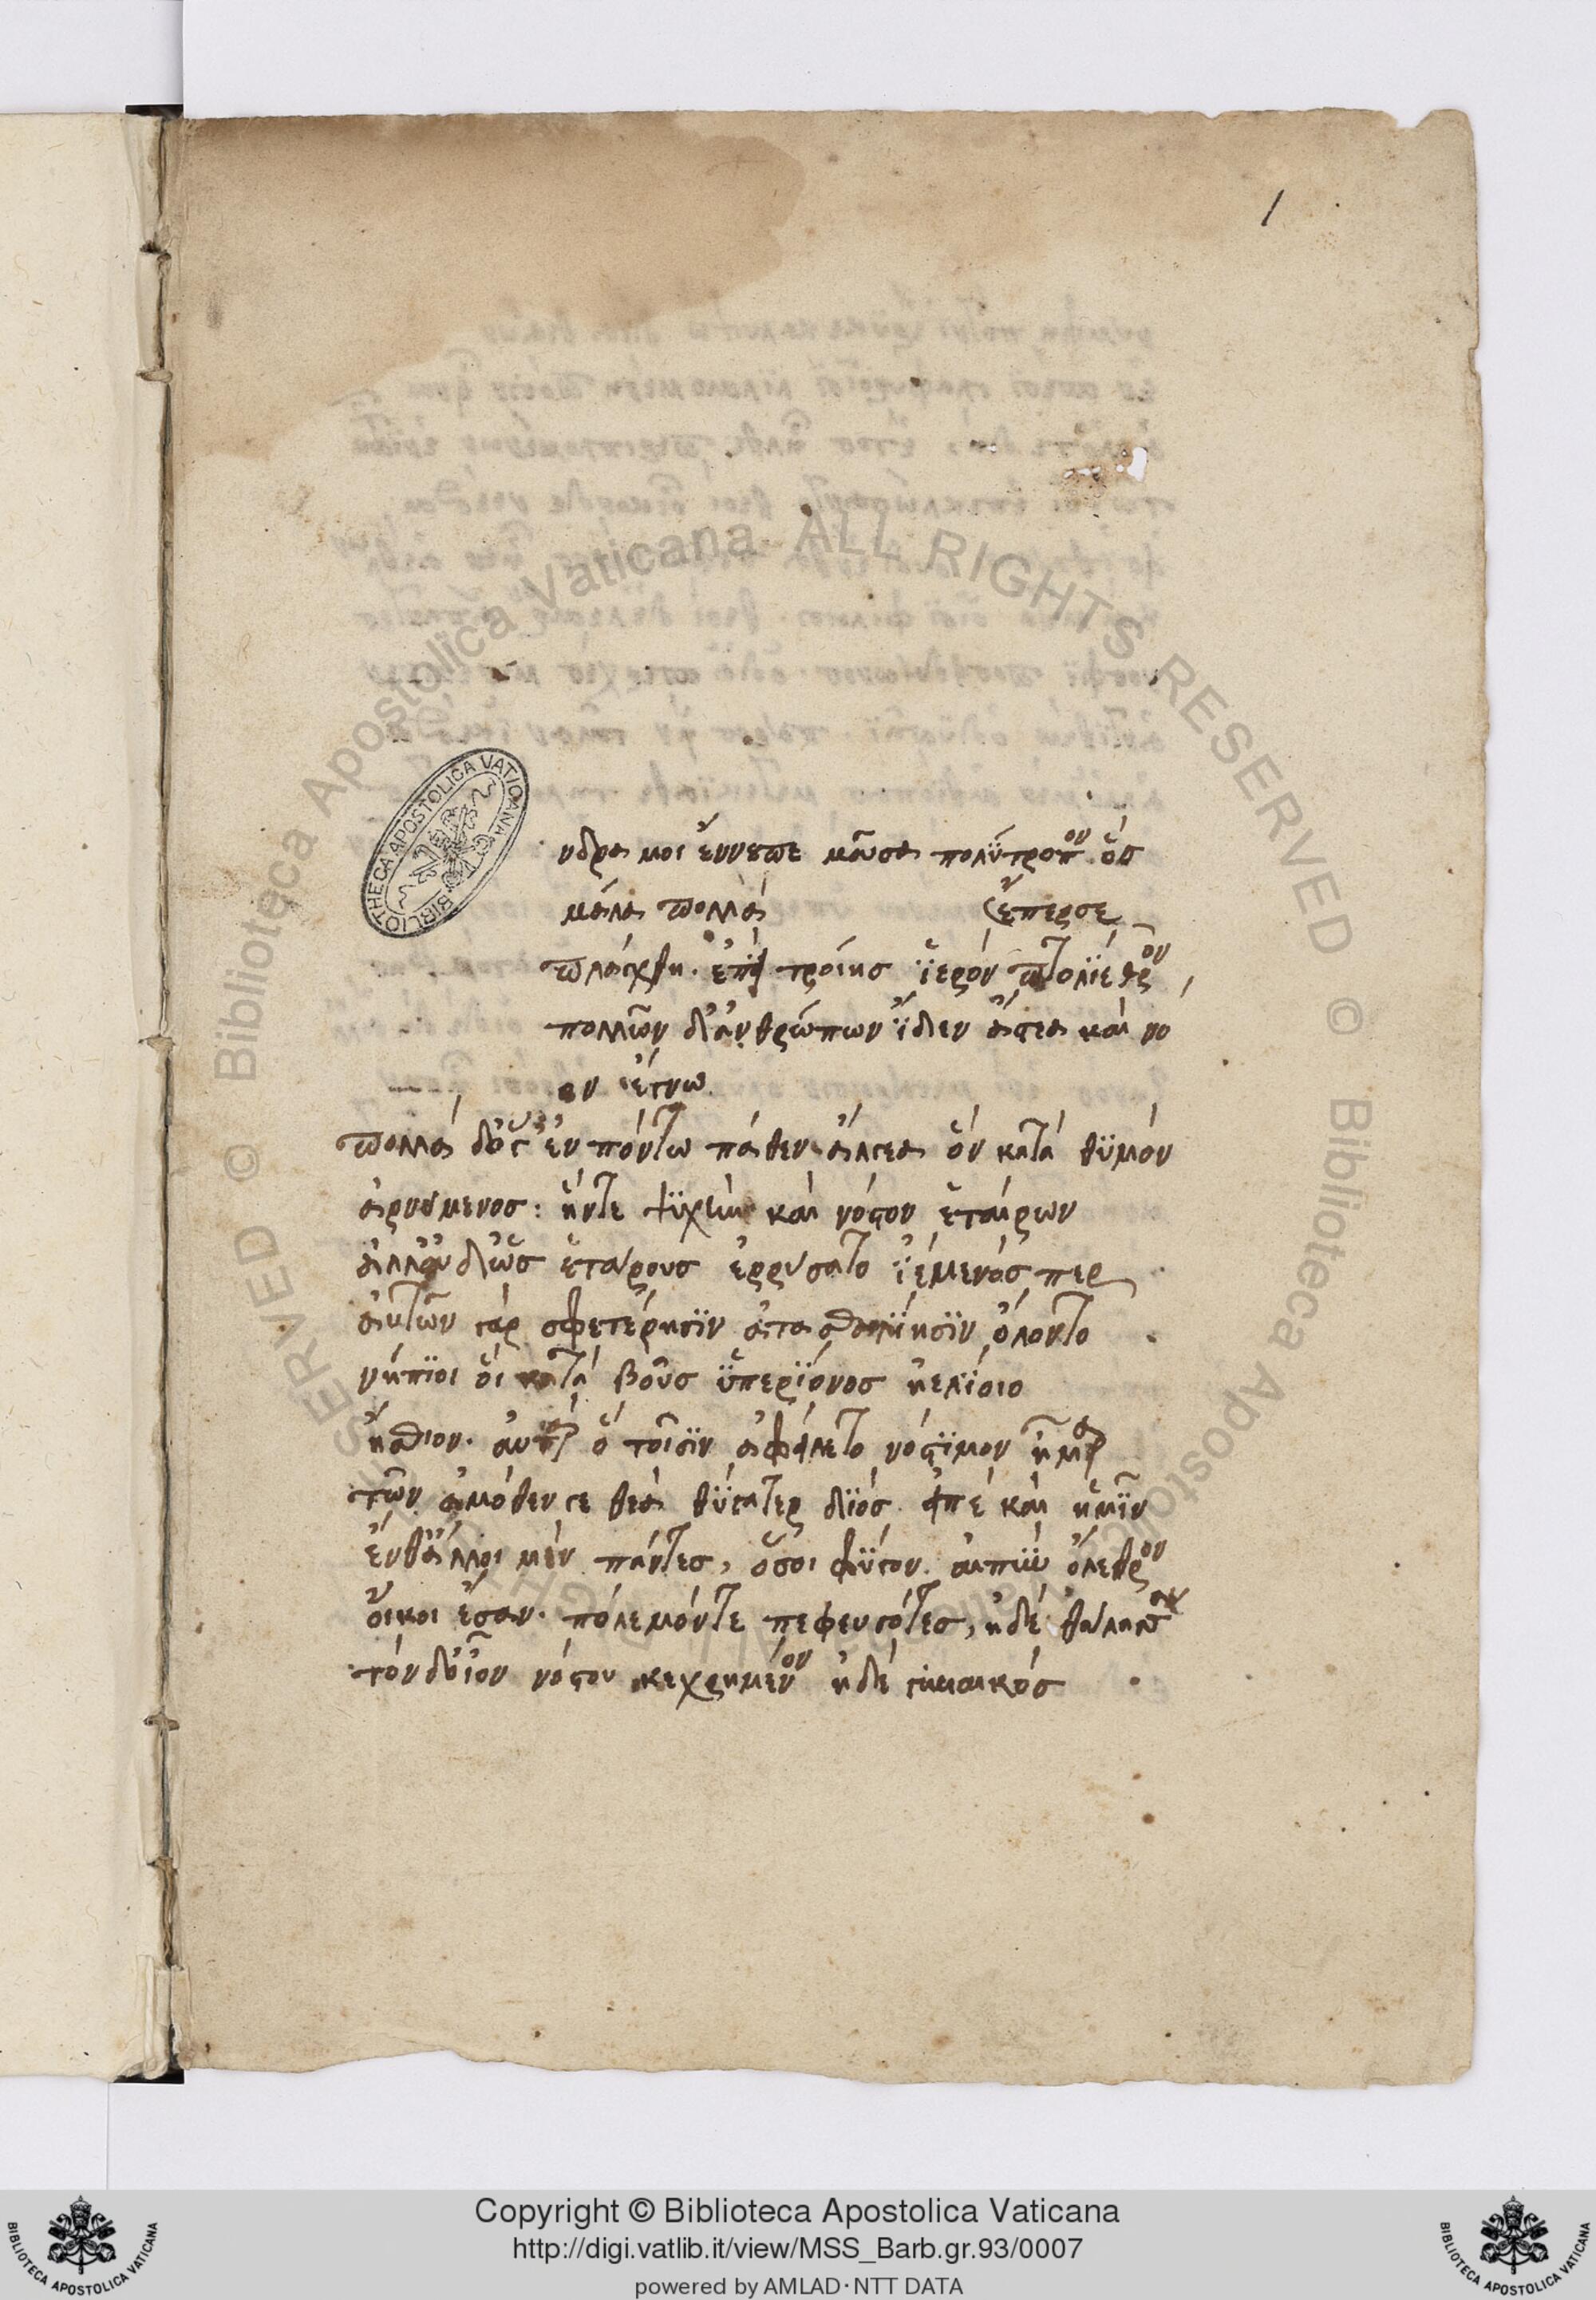 1
νδρα μοι ἔννεπε μοῦσα πολύτροπον ὃσ
μάλα πολλὰ (ἔπερσε
πλάγχθη. ἐπεὶ τροίησ ἱερὸν πτολίεθρον,
πολλῶν δ' ἀνθρώπων ἴδεν ἄστεα καὶ νό
ον ἔγνω.
πολλὰ δ' ὅγ' ἐν πόντω πάθεν ἄλγεα ὃν κατὰ θϋμὸν
ἀρνύμενοσ: ἥντε ψϋχὴν καὶ νόστον ἑταίρων
ἀλλ' οὐδ' ὣσ ἑτάρουσ ἐρρύσατο ϊέμενόσ περ
αὐτῶν γὰρ σφετέρησϊν ἀτασθαλίησϊν ὄλοντο .
νήπϊοι οἳ κατὰ βοῦσ ὑπερϊόνοσ ἠελίοιο
ἤσθιον. αὐτὰρ ὃ τοῖσϊν ἀφείλετο νόστϊμον ἦμαρ
τῶν ἀμόθεν γε θεὰ θύγατερ διὸσ εἰπὲ καὶ ἡμῖν
ἔνθ' ἄλλοι μὲν πάντεσ, ὅσοι φύγον. αἰπὺν ὄλεθρον
οἴκοι ἔσαν. πόλεμόντε πεφευγότεσ, ἠδὲ θάλασσαν
τὸν δ' οἶον νόστου κεχρημένον ἠδὲ γυναικόσ .
BIBLIOTHECA APOSTOLICA VATICANA
© Biblioteca Apostolica Vaticana ALL RIGHTS RESERVED
© Biblioteca Apostolica Vaticana ALL RIGHTS RESERVED
Copyright © Biblioteca Apostolica Vaticana
http://digi.vatlib.it/view/MSS_Barb.gr.93/0007
powered by AMLAD·NTT DATA
BIBLIOTECA APOSTOLICA VATICANA
BIBLIOTECA APOSTOLICA VATICANA